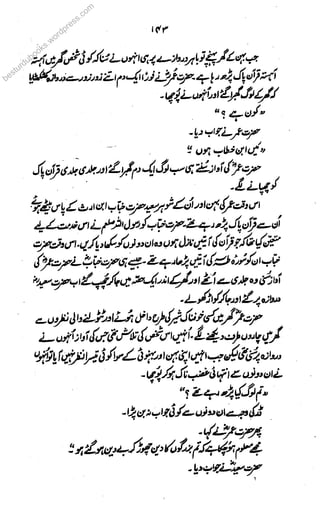 ۱۴۳
besturdubooks.wordpress.com
جب بہن کے گھر پہنچے تو باہر دروازے پر ہی انہوں نے سنا کہ کوئی شخص گھر میں آہستہ
آہستہ قرآن پاک پڑھ رہا ہے۔ حضرت عمرؓ نے فوراً ایک دم اتنے زور زور سے دروازہ کھٹکھٹایا
کہ گھر کے لوگ گھبرا گئے اور انہوں نے پوچھا۔
"کون ہے؟"
حضرت عمرؓ نے جواب دیا۔
"میں ابن خطاب ہوں"
حضرت عمرؓ کی آواز سنتے ہی سب لوگ ایک دم گھبرا گئے اور جلدی جلدی قرآن پاک
کو چھپانے لگے۔
اس وقت عمرؓ کی بہن اور ان کے شوہر سعیدؓ حضرت خبابؓ ابن ارث کے پاس بیٹھے ہوئے
اُن سے قرآن پاک پڑھ رہے تھے۔ حضرت خبابؓ کو رسول اللہ صلعم نے اس خدمت کے لیے
متعین کیا تھا کہ جو قرآن کی آیتیں نازل ہوں وہ ان دونوں کو سکھا دیا کریں۔ اس وقت حضرت
خبابؓ ان کو سورہ طٰہٰ کی آیتیں پڑھا رہے تھے۔ جیسے ہی حضرت خبابؓ نے حضرت عمرؓ کی
آواز سنی وہ جلدی سے اُٹھے اور گھر کے اندر ایک حصہ میں جا کر چھپ گئے اب حضرت سعیدؓ
دروازہ پر گئے اور جا کر کواڑ کھولے۔
حضرت عمرؓ گھر میں کسی خوفناک شیر کی طرح داخل ہوئے اور ٹٹولنے والی نظروں سے
گھر میں چاروں طرف دیکھنے لگے۔ انہیں اس شخص کی تلاش تھی جس کی آواز انہوں نے
دروازہ پر سنی تھی لیکن جب انہیں اپنی بہن اور بہنوئی کے سوا کوئی تیسرا نظر نہیں آیا تو انہوں
نے ان دونوں سے انتہائی غضب ناک ہو کر پوچھا۔
"تم لوگ کیا پڑھ رہے تھے؟"
ڈر کی وجہ سے ان دونوں سے کوئی جواب نہ بن پڑا۔
پھر حضرت عمرؓ نے کہا۔
مجھے معلوم ہو چکا ہے کہ تم بزرگوں کا دین چھوڑ کر بے دین ہو گئے ہو"
حضرت سعیدؓ نے جواب دیا۔